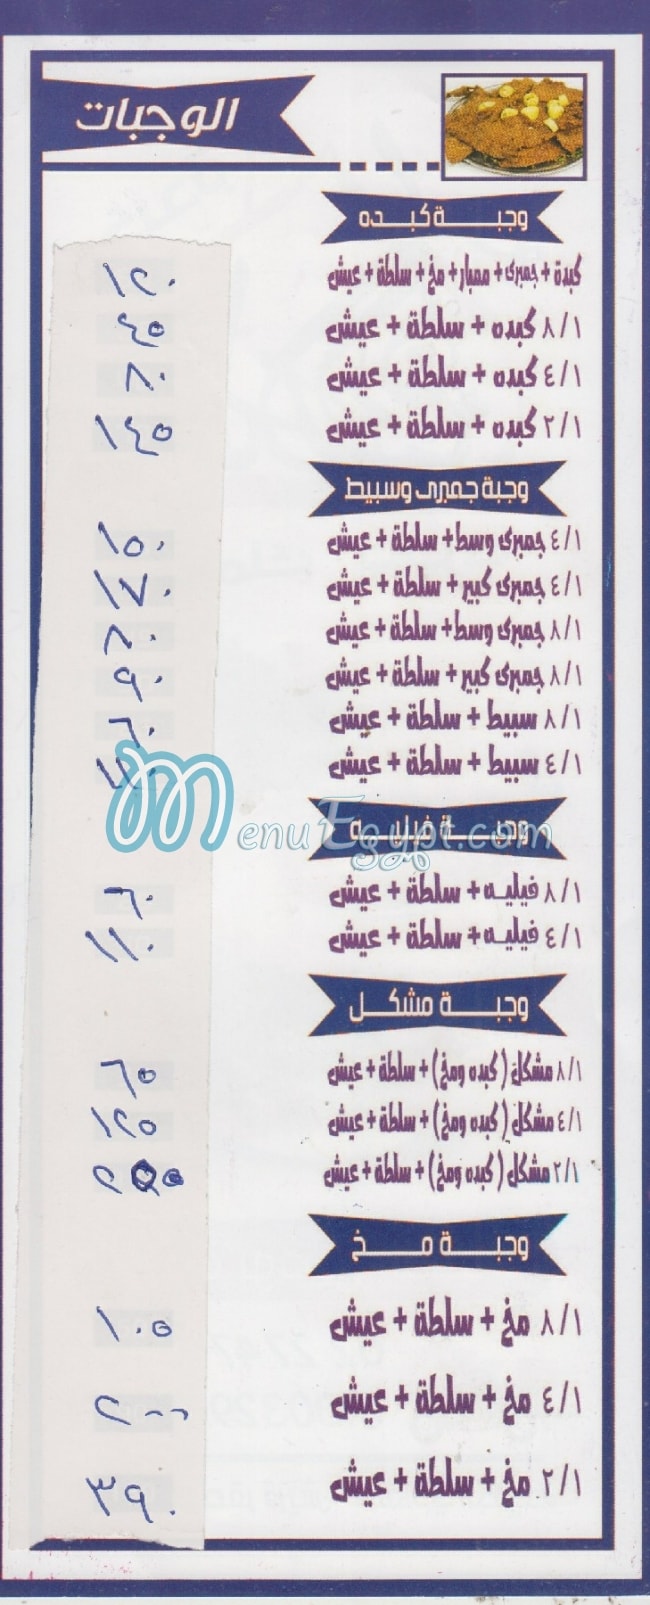 الوجبات
وجبة كبده
كبدة + جمبرى + ممبار + مخ + سلطة + عيش ١٢٠
١/٨ كبده + سلطة + عيش ٤٥
١/٤ كبده + سلطة + عيش ٨٠
١/٢ كبده + سلطة + عيش ١٤٥
وجبة جمبرى وسبيط
١/٤ جمبرى وسط + سلطة + عيش ١٥٠
١/٤ جمبرى كبير + سلطة + عيش ١٧٠
١/٨ جمبرى وسط + سلطة + عيش ٨٠
١/٨ جمبرى كبير + سلطة + عيش ٩٠
١/٨ سبيط + سلطة + عيش ٦٠
١/٤ سبيط + سلطة + عيش
MenuEgypt.com
وجبة فيليه
١/٨ فيليه + سلطة + عيش ٦٠
١/٤ فيليه + سلطة + عيش ١١٠
وجبة مشكل
١/٨ مشكل (كبده ومخ) + سلطة + عيش ٦٥
١/٤ مشكل (كبده ومخ) + سلطة + عيش ١٢٥
١/٢ مشكل (كبده ومخ) + سلطة + عيش
وجبة مخ
١/٨ مخ + سلطة + عيش ١٠٥
١/٤ مخ + سلطة + عيش ٢٠٠
١/٢ مخ + سلطة + عيش ٣٩٠